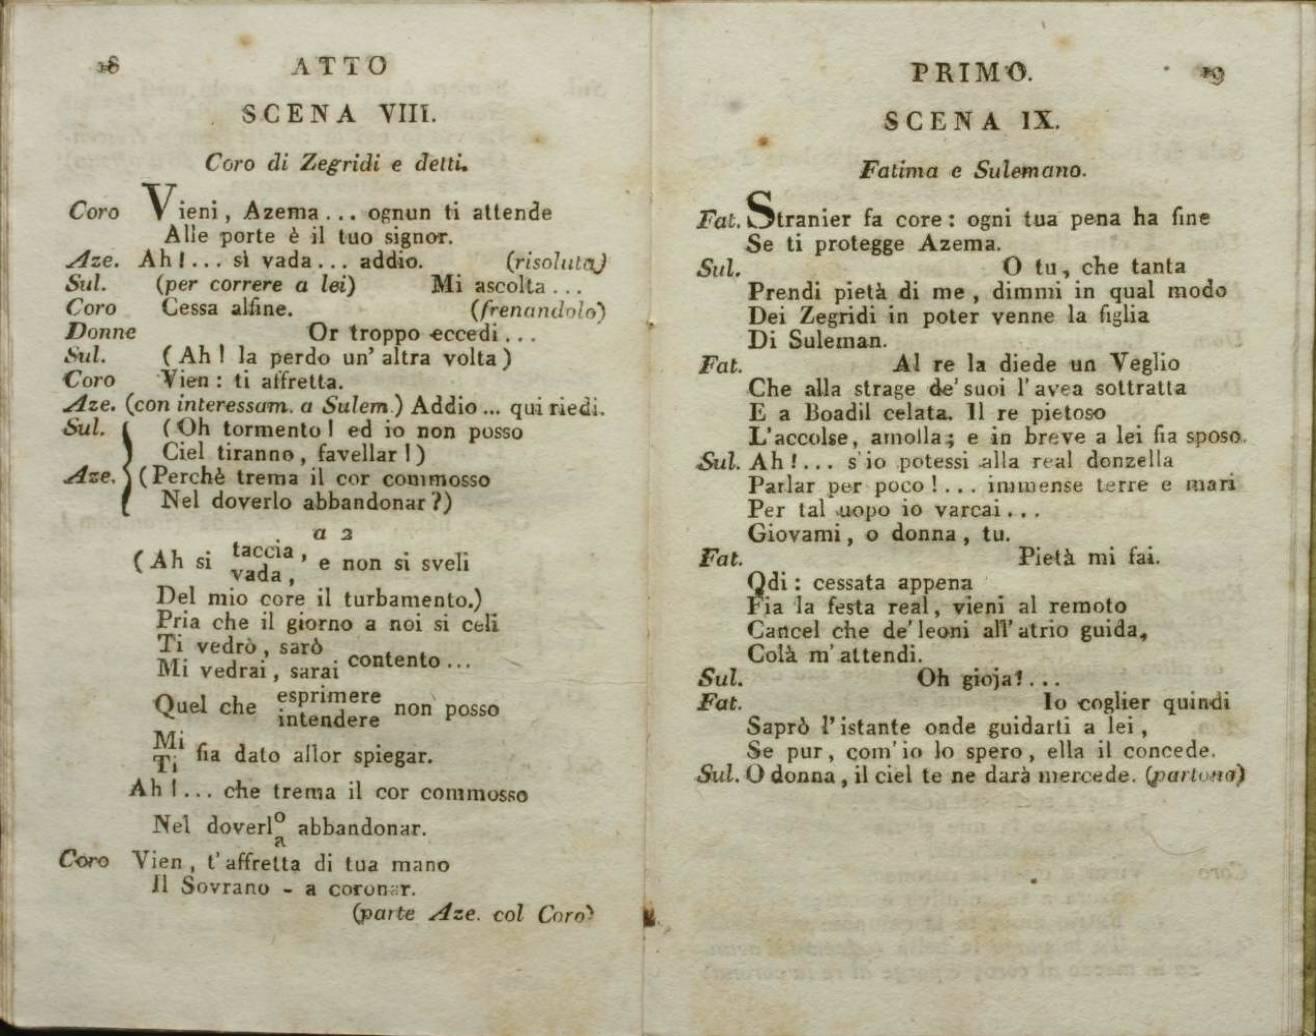 18 ATTO
SCENA VIII.
Coro di Zegridi e detti.
Coro Vieni, Azema... ognun ti attende
Alle porte è il tuo signor.
Aze. Ah!... sì vada... addio. (risoluta)
Sul. (per correre a lei) Mi ascolta...
Coro Cessa alfine. (frenandolo)
Donne Or troppo eccedi...
Sul. (Ah! la perdo un' altra volta)
Coro Vien: ti affretta.
Aze. (con interessam. a Sulem.) Addio... qui riedi.
Sul. (Oh tormento! ed io non posso
Ciel tiranno, favellar!)
Aze. (Perchè trema il cor commosso
Nel doverlo abbandonar?)
a 2
(Ah si taccia, e non si sveli
vada,
Del mio core il turbamento.)
Pria che il giorno a noi si celi
Ti vedrò, sarò
Mi vedrai, sarai contento...
Quel che esprimere non posso
intendere
Mi
Ti fia dato allor spiegar.
Ah!... che trema il cor commosso
Nel doverlo abbandonar.
a
Coro Vien, t'affretta di tua mano
Il Sovrano - a coronar.
(parte Aze. col Coro)
PRIMO. 19
SCENA IX.
Fatima e Sulemano.
Fat. Stranier fa core: ogni tua pena ha fine
Se ti protegge Azema.
Sul. O tu, che tanta
Prendi pietà di me, dimmi in qual modo
Dei Zegridi in poter venne la figlia
Di Suleman.
Fat. Al re la diede un Veglio
Che alla strage de' suoi l'avea sottratta
E a Boadil celata. Il re pietoso
L'accolse, amolla; e in breve a lei fia sposo.
Sul. Ah!... s'io potessi alla real donzella
Parlar per poco!... immense terre e mari
Per tal uopo io varcai...
Giovami, o donna, tu.
Fat. Pietà mi fai.
Odi: cessata appena
Fia la festa real, vieni al remoto
Cancel che de' leoni all' atrio guida,
Colà m' attendi.
Sul. Oh gioja!...
Fat. Io coglier quindi
Saprò l'istante onde guidarti a lei,
Se pur, com' io lo spero, ella il concede.
Sul. O donna, il ciel te ne darà mercede. (partono)